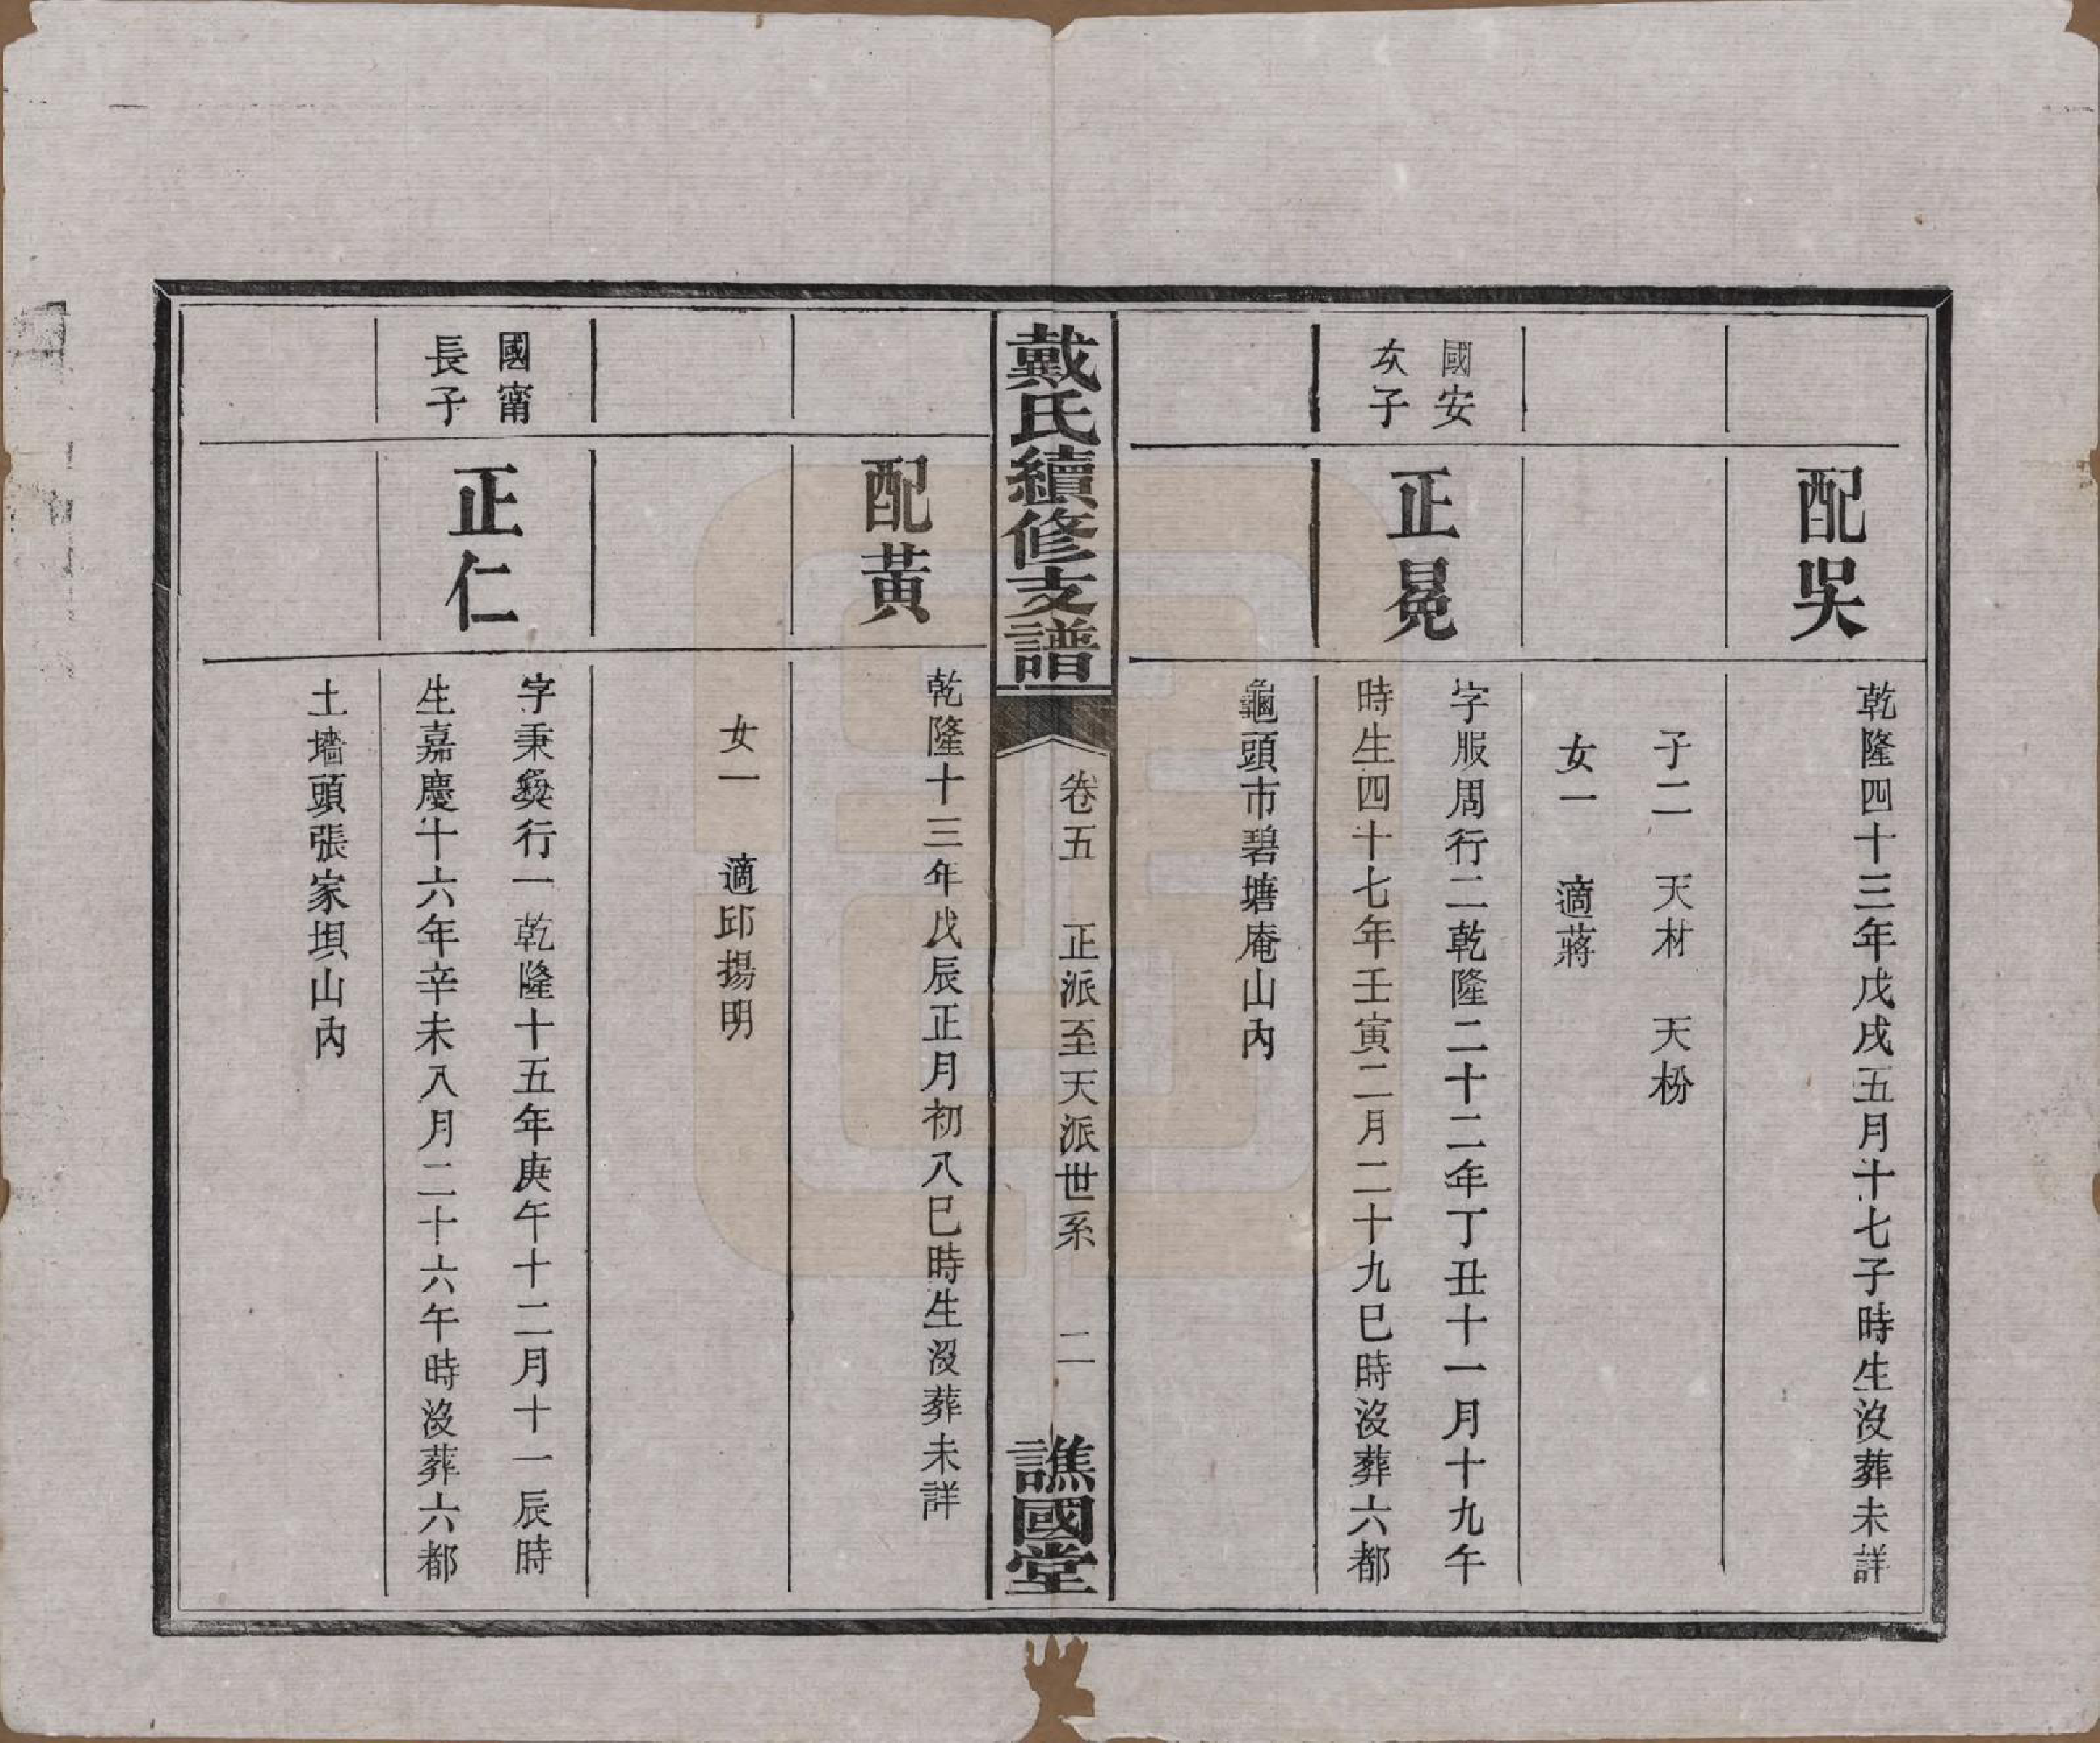 配吳
乾隆四十三年戊戌五月十七子時生沒葬未詳
子二 天材 天枌
女一 適蔣
國安
次子
正晃
字服周行二乾隆二十二年丁丑十一月十九午
時生四十七年壬寅二月二十九巳時沒葬六都
龜頭市碧塘庵山內
戴氏續修支譜
卷五 正派至天派世系 二
譙國堂
配黃
乾隆十三年戊辰正月初八巳時生沒葬未詳
女一 適邱揚明
國甯
長子
正仁
字秉彝行一乾隆十五年庚午十二月十一辰時
生嘉慶十六年辛未八月二十六午時沒葬六都
土墻頭張家垻山內